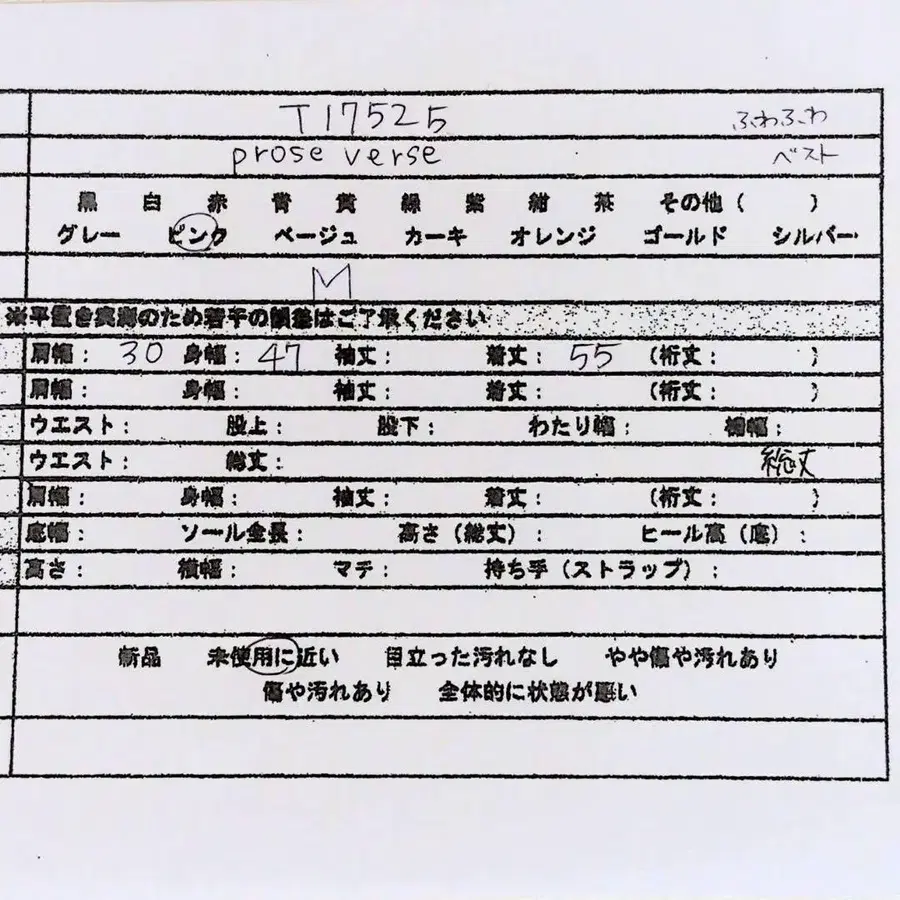 T17525 ふわふわ
prose verse ベスト
黒 白 赤 青 黄 緑 紫 紺 茶 その他( )
グレー ピンク ベージュ カーキ オレンジ ゴールド シルバー
M
※平置き実測のため若干の誤差はご了承ください
肩幅: 30 身幅: 47 袖丈: 着丈: 55 (裄丈: )
肩幅: 身幅: 袖丈: 着丈: (裄丈: )
ウエスト: 股上: 股下: わたり幅: 裾幅:
ウエスト: 総丈: 総丈
肩幅: 身幅: 袖丈: 着丈: (裄丈: )
底幅: ソール全長: 高さ(総丈): ヒール高(底):
高さ: 横幅: マチ: 持ち手(ストラップ):
新品 未使用に近い 目立った汚れなし やや傷や汚れあり
傷や汚れあり 全体的に状態が悪い